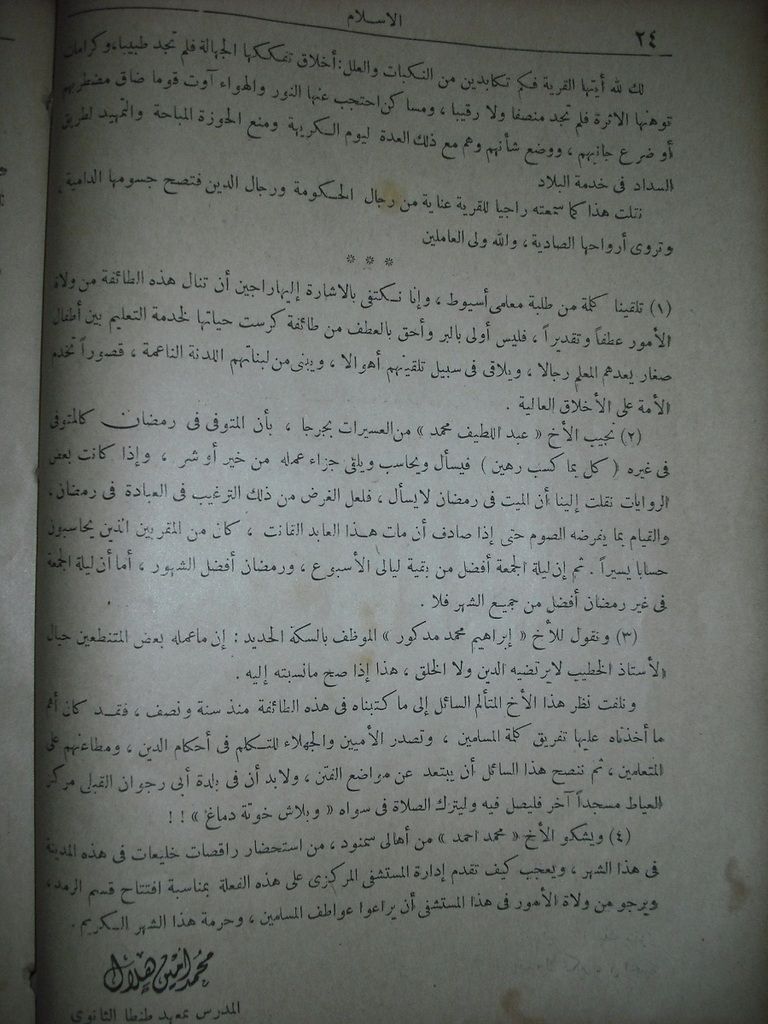 الاسلام
٢٤
لك لله أيتها القرية فكم تكابدين من النكبات والعلل: أخلاق تفككها الجهالة فلم تجد طبيبا، وكرامات
توهنها الاثرة فلم تجد منصفا ولا رقيبا، ومساكن احتجب عنها النور والهواء آوت قوما ضاق مضطربهم
أو ضرع جانبهم، ووضع شأنهم وهم مع ذلك العدة ليوم الكريهة ومنع الحوزة المباحة والتمهيد لطريق
السداد فى خدمة البلاد
نقلت هذا كما سمعته راجيا للقرية عناية من رجال الحكومة ورجال الدين فتصح جسومها الدامية،
وتروى أرواحها الصادية، والله ولى العاملين
* * *
(١) تلقينا كلمة من طلبة معلمى أسيوط، وإنا نكتفى بالاشارة إليها راجين أن تنال هذه الطائفة من ولاة
الأمور عطفاً وتقديراً، فليس أولى بالبر وأحق بالعطف من طائفة كرست حياتها لخدمة التعليم بين أطفال
صغار يعدهم المعلم رجالا، ويلاقى فى سبيل تلقينهم أهوالا، ويبنى من لبناتهم اللدنة الناعمة، قصوراً تخدم
الأمة على الأخلاق العالية.
(٢) نجيب الأخ « عبد اللطيف محمد » من العسيرات بجرجا، بأن المتوفى فى رمضان كالمتوفى
فى غيره ( كل بما كسب رهين ) فيسأل ويحاسب ويلقى جزاء عمله من خير أو شر، وإذا كانت بعض
الروايات نقلت إلينا أن الميت فى رمضان لا يسأل، فلعل الغرض من ذلك الترغيب فى العبادة فى رمضان.
والقيام بما يفرضه الصوم حتى إذا صادف أن مات هذا العابد القانت، كان من المقربين الذين يحاسبون
حسابا يسيراً. ثم إن ليلة الجمعة أفضل من بقية ليالى الأسبوع، ورمضان أفضل الشهور، أما أن ليلة الجمعة
فى غير رمضان أفضل من جميع الشهر فلا.
(٣) ونقول للأخ « إبراهيم محمد مدكور » الموظف بالسكة الحديد : إن ما عمله بعض المتنطعين حيال
الأستاذ الخطيب لا يرتضيه الدين ولا الخلق، هذا إذا صح ما نسبته إليه.
ونلفت نظر هذا الأخ المتألم السائل إلى ما كتبناه فى هذه الطائفة منذ سنة ونصف، فقد كان أهم
ما أخذناه عليها تفريق كلمة المسلمين، وتصدر الأميين والجهلاء للتكلم فى أحكام الدين، ومطاعنهم على
المتعلمين، ثم ننصح هذا السائل أن يبتعد عن مواضع الفتن، ولابد أن فى بلدة أبى رجوان القبلى مركز
العياط مسجداً آخر فليصل فيه وليترك الصلاة فى سواه « وبلاش خوتة دماغ » ! !
(٤) ويشكو الأخ « محمد احمد » من أهالى سمنود، من استحضار راقصات خليعات فى هذه المدينة
فى هذا الشهر، ويعجب كيف تقدم إدارة المستشفى المركزى على هذه الفعلة بمناسبة افتتاح قسم الرمد،
ويرجو من ولاة الأمور فى هذا المستشفى أن يراعوا عواطف المسلمين، وحرمة هذا الشهر الكريم.
محمد أمين هلال
المدرس بمعهد طنطا الثانوى